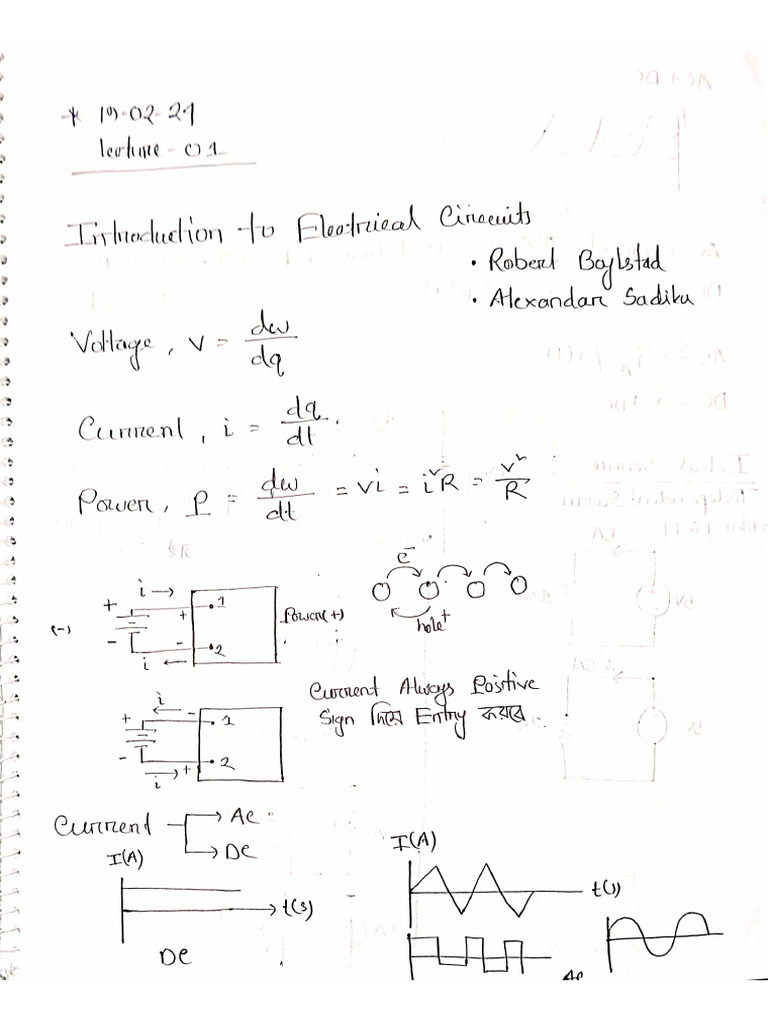 * 19-02-24
lecture - 01
Introduction to Electrical Circuits
• Robert Boylstad
• Alexandar Sadiku
Voltage, v = dw/dq
Current, i = dq/dt
Power, P = dw/dt = vi = i²R = v²/R
e⁻
i →
+ + 1 Power(+)
(-)
- - 2
i ←
hole⁺
Current Always Positive
Sign দিয়ে Entry করবে
i ←
+ - 1
- + 2
i →
Current → AC
→ DC
I(A)
t(s)
DC
I(A)
t(s)
AC